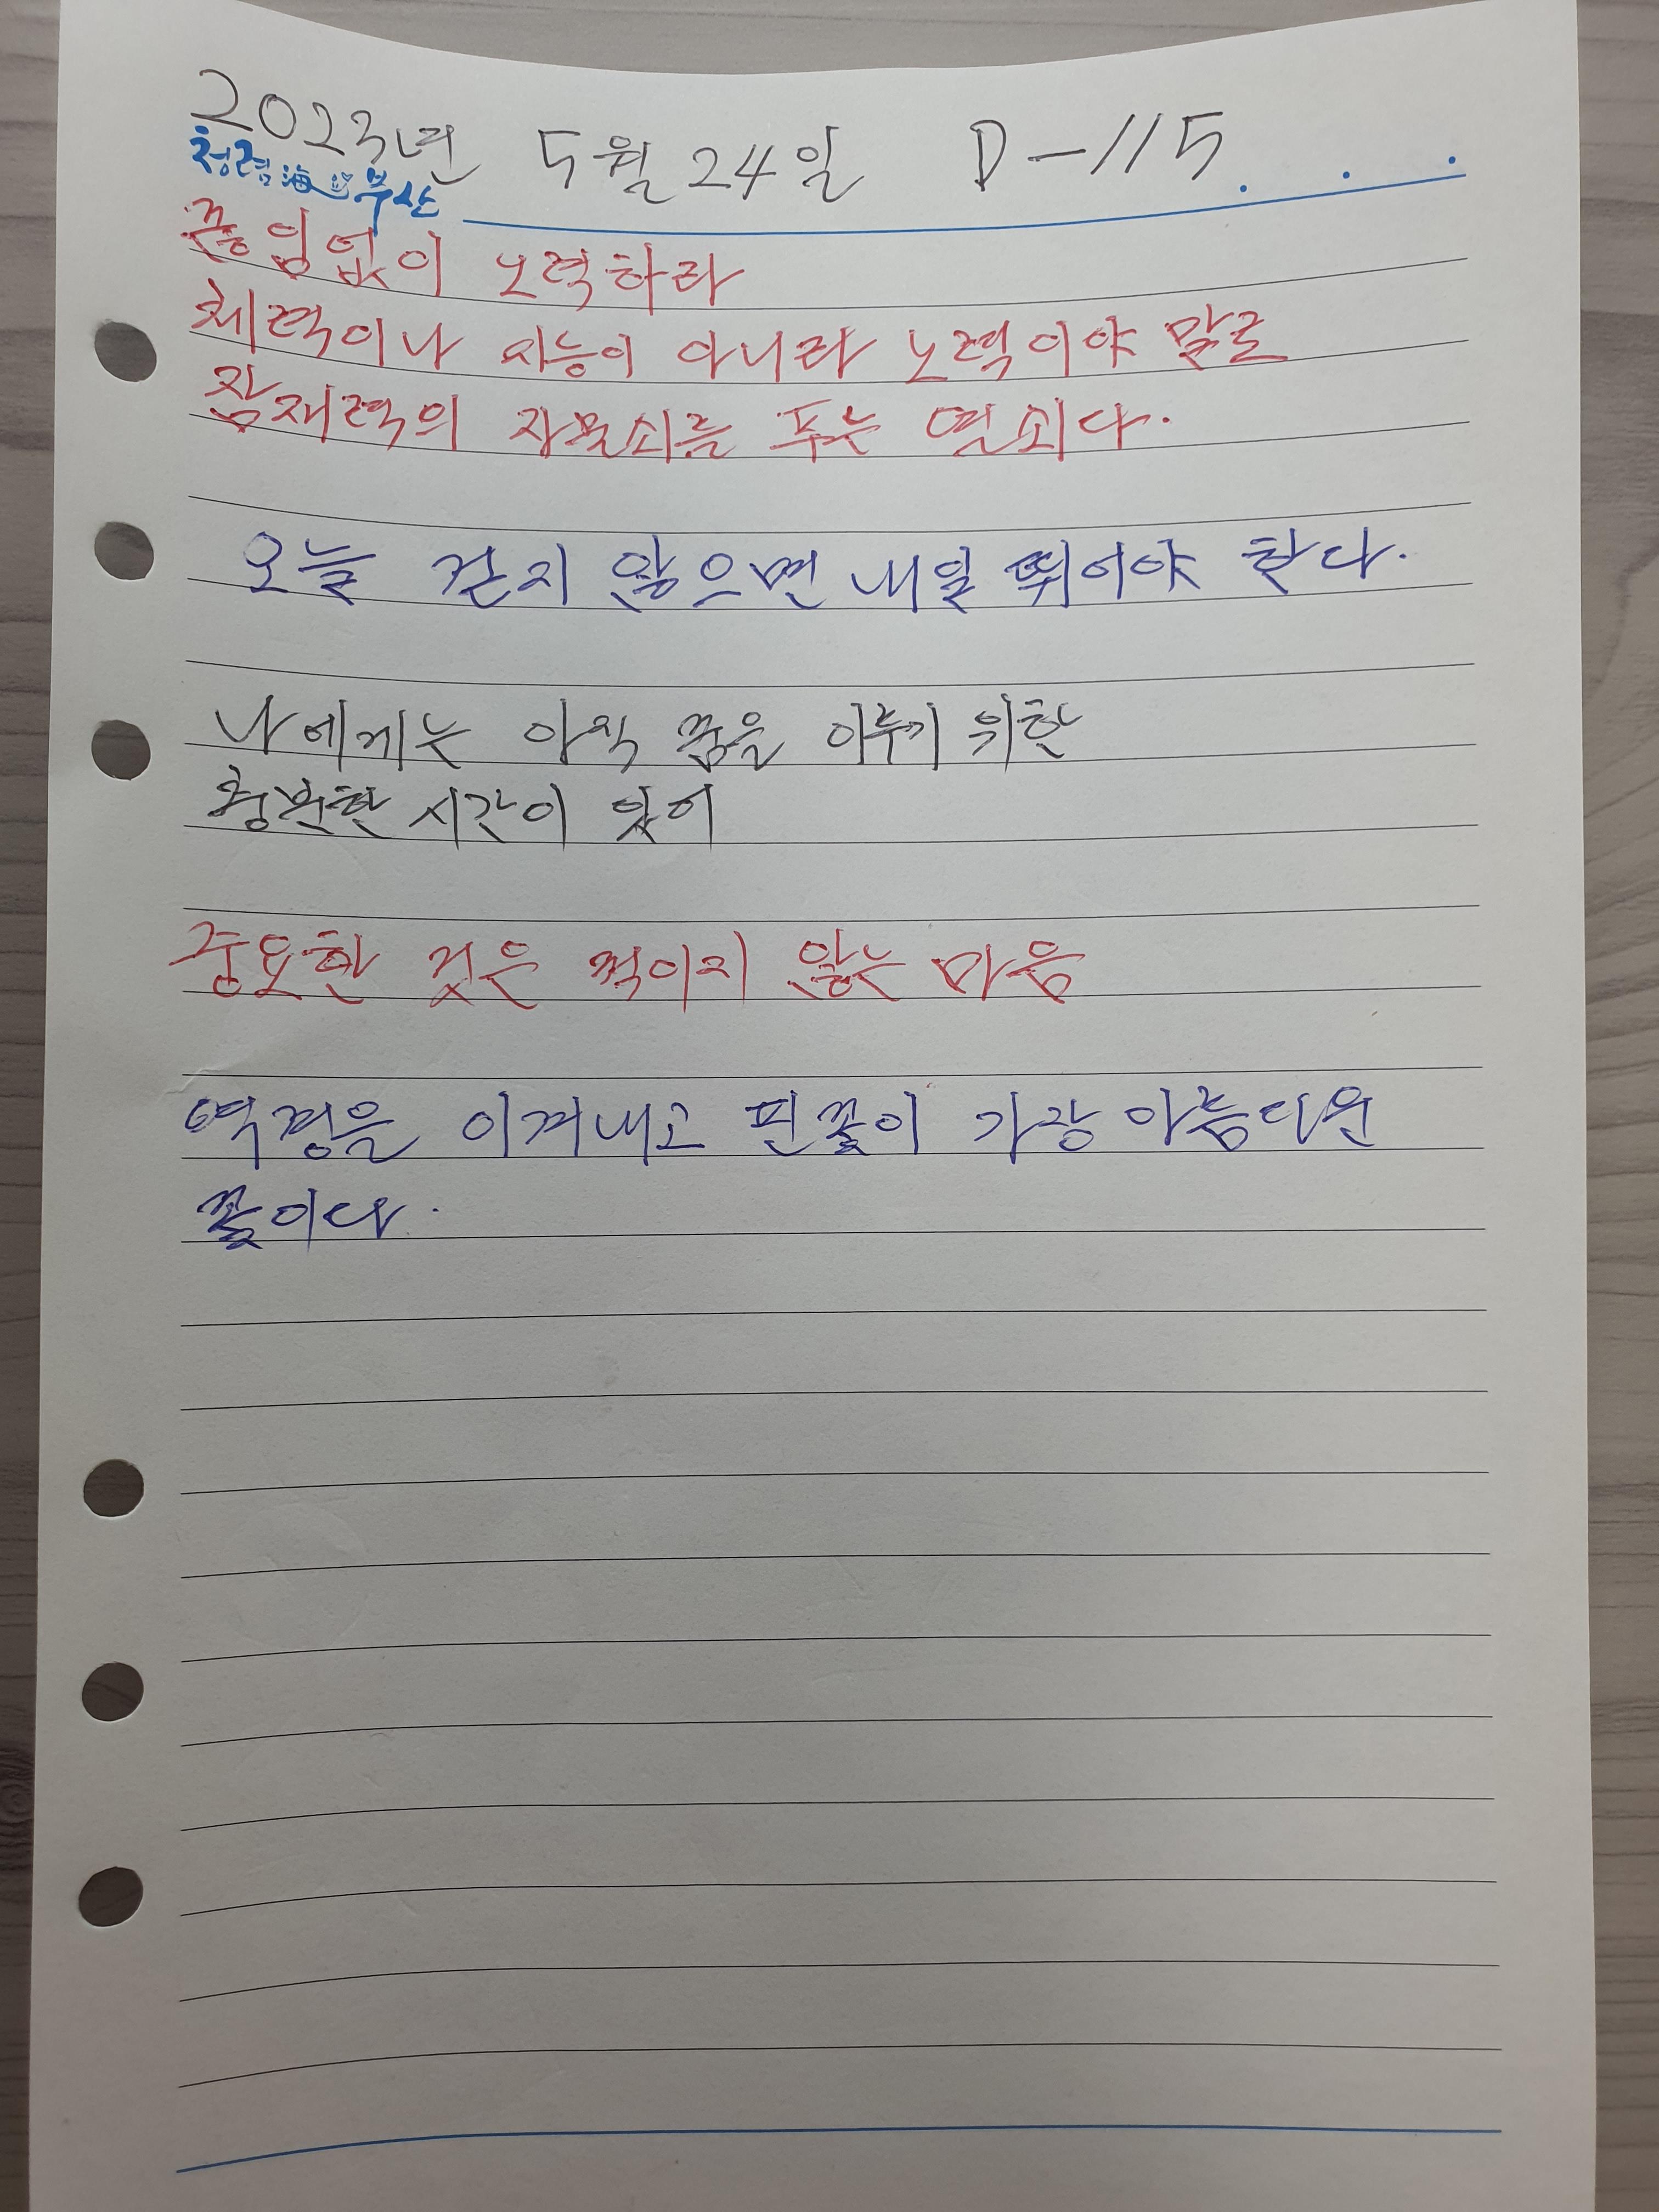 2023년 5월 24일 D-115
청렴海 부산
끊임없이 노력하라
체력이나 지능이 아니라 노력이야 말로
잠재력의 자물쇠를 푸는 열쇠다.
오늘 걷지 않으면 내일 뛰어야 한다.
나에게는 아직 꿈을 이루기 위한
충분한 시간이 있어
중요한 것은 꺽이지 않는 마음
역경을 이겨내고 핀 꽃이 가장 아름다운
꽃이다.